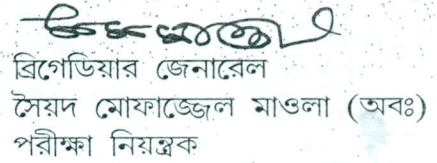 ব্রিগেডিয়ার জেনারেল
সৈয়দ মোফাজ্জেল মাওলা (অবঃ)
পরীক্ষা নিয়ন্ত্রক